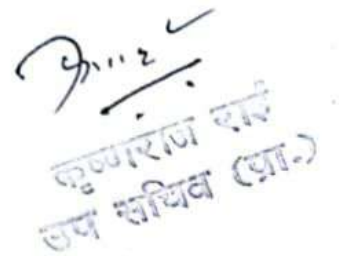 कृष्णराज राई
उप सचिव (प्रा.)